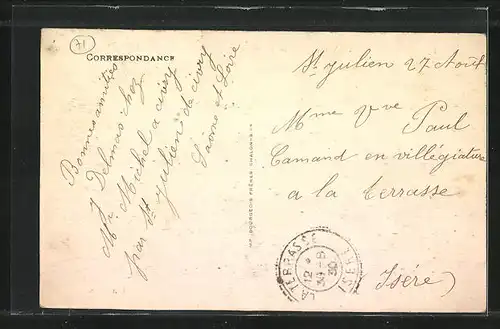 71
CORRESPONDANCE
Bonnes amitiés
J Delmas chez
Mr Michel a civry
par St Julien de civry
Saone et Loire
IMP. BOURGEOIS FRÈRES CHALON S/S
St Julien 27 Août
Mme Vve Paul
Camand en villégiature
a la terrasse
(Isère)
LA TERRASSE
12 *
30 - 8
30
ISERE